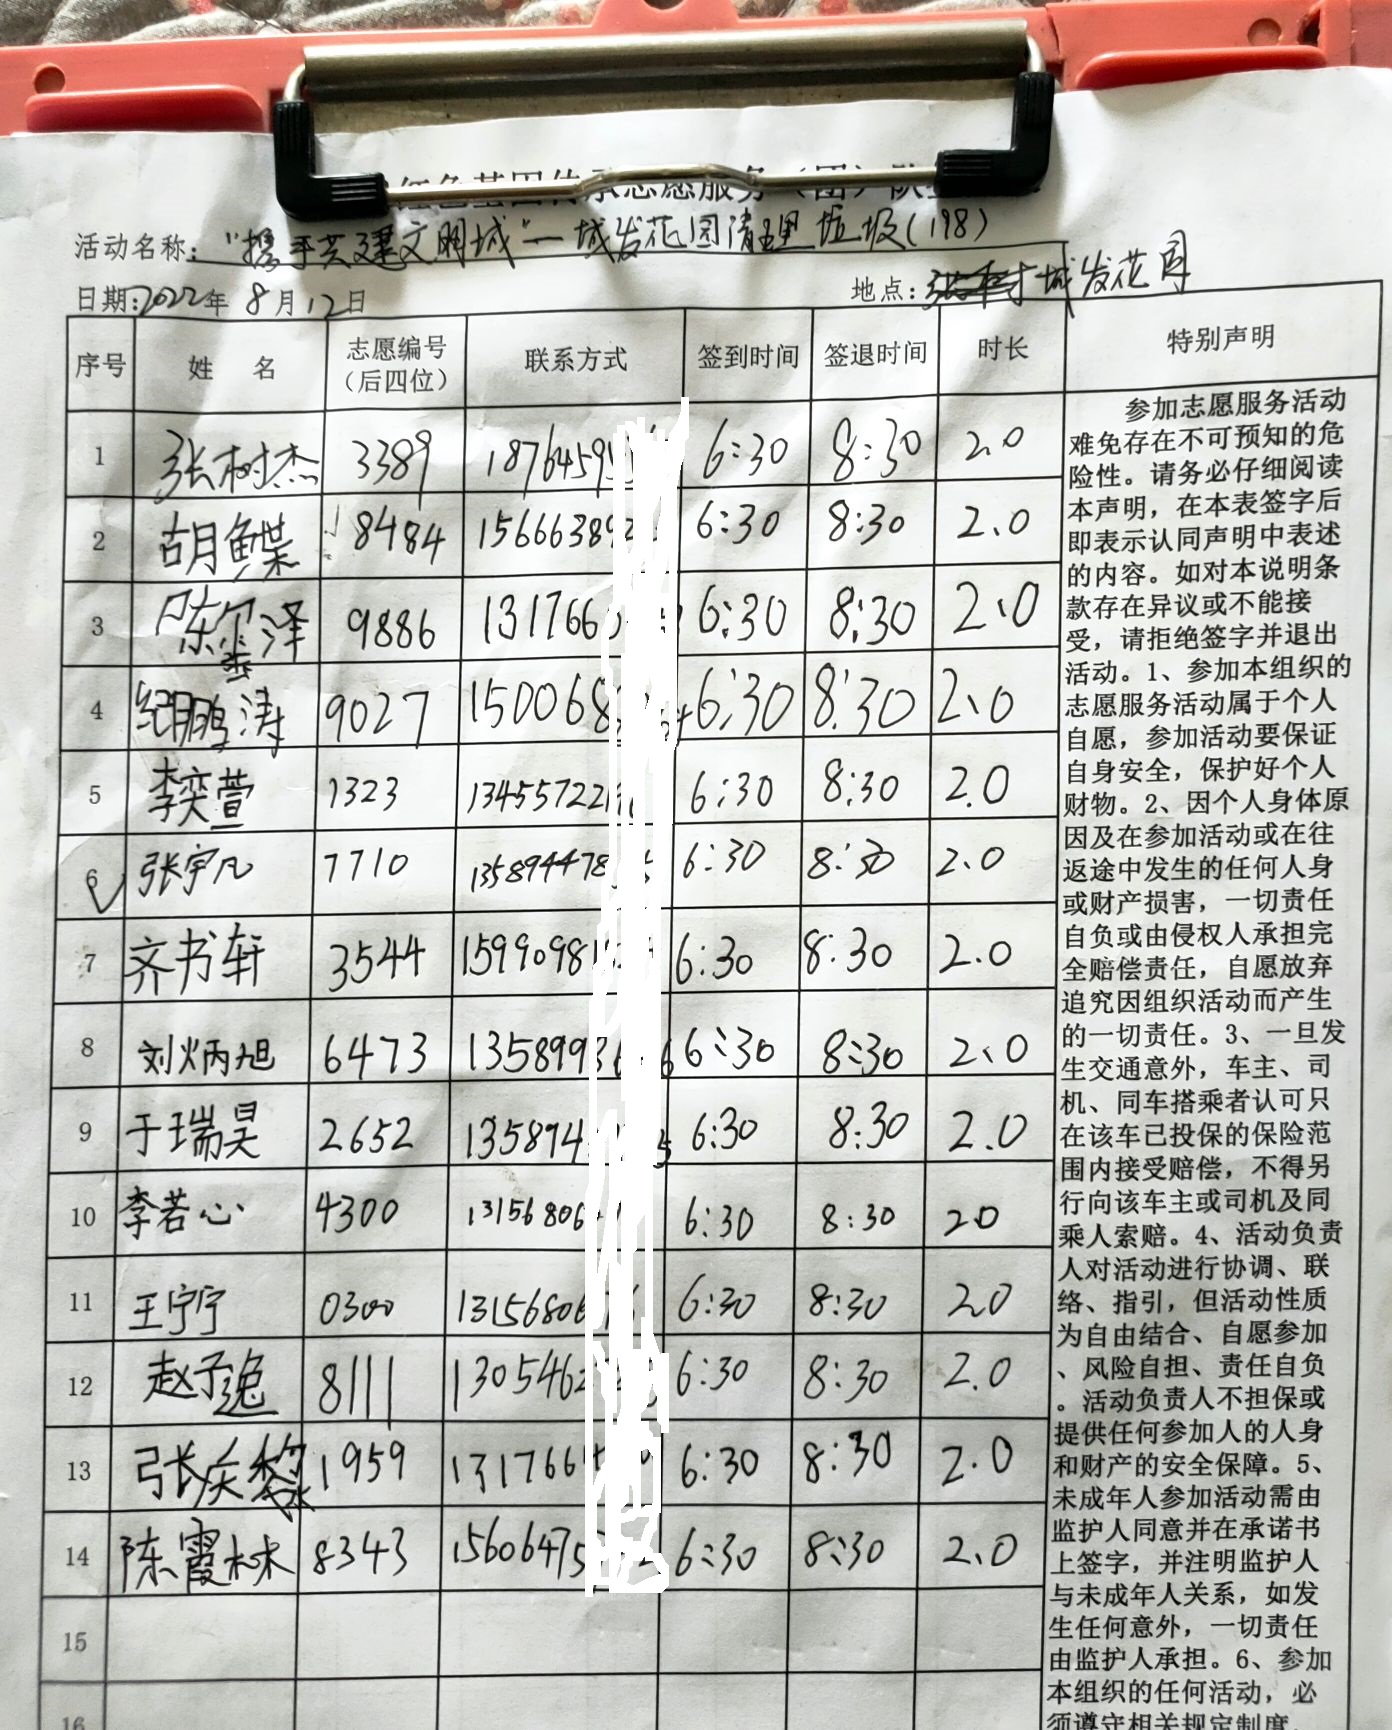 红色基因传承志愿服务（团）队
活动名称："携手共建文明城"—城发花园清理垃圾(198)
日期:2022年 8月12日 地点: 城发花园
序号 姓 名 志愿编号（后四位） 联系方式 签到时间 签退时间 时长 特别声明
1 张树杰 3389 18764595 6:30 8:30 2.0
2 胡鲽 8484 15666389 6:30 8:30 2.0
3 陈 泽 9886 131766 6:30 8:30 2.0
4 纪鹏涛 9027 150068 6:30 8:30 2.0
5 李奕萱 1323 134557221 6:30 8:30 2.0
6 张宇凡 7710 135894478 6:30 8:30 2.0
7 齐书轩 3544 15990981 6:30 8:30 2.0
8 刘炳旭 6473 13589936 6:30 8:30 2.0
9 于瑞昊 2652 135894 6:30 8:30 2.0
10 李若心 4300 13156806 6:30 8:30 20
11 王宁宁 0300 13156806 6:30 8:30 2.0
12 赵子逸 8111 1305462 6:30 8:30 2.0
13 张庆黎 1959 1317664 6:30 8:30 2.0
14 陈霞林 8343 15606475 6:30 8:30 2.0
15
16
参加志愿服务活动
难免存在不可预知的危
险性。请务必仔细阅读
本声明，在本表签字后
即表示认同声明中表述
的内容。如对本说明条
款存在异议或不能接
受，请拒绝签字并退出
活动。1、参加本组织的
志愿服务活动属于个人
自愿，参加活动要保证
自身安全，保护好个人
财物。2、因个人身体原
因及在参加活动或在往
返途中发生的任何人身
或财产损害，一切责任
自负或由侵权人承担完
全赔偿责任，自愿放弃
追究因组织活动而产生
的一切责任。3、一旦发
生交通意外，车主、司
机、同车搭乘者认可只
在该车已投保的保险范
围内接受赔偿，不得另
行向该车主或司机及同
乘人索赔。4、活动负责
人对活动进行协调、联
络、指引，但活动性质
为自由结合、自愿参加
、风险自担、责任自负
。活动负责人不担保或
提供任何参加人的人身
和财产的安全保障。5、
未成年人参加活动需由
监护人同意并在承诺书
上签字，并注明监护人
与未成年人关系，如发
生任何意外，一切责任
由监护人承担。6、参加
本组织的任何活动，必
须遵守相关规定制度